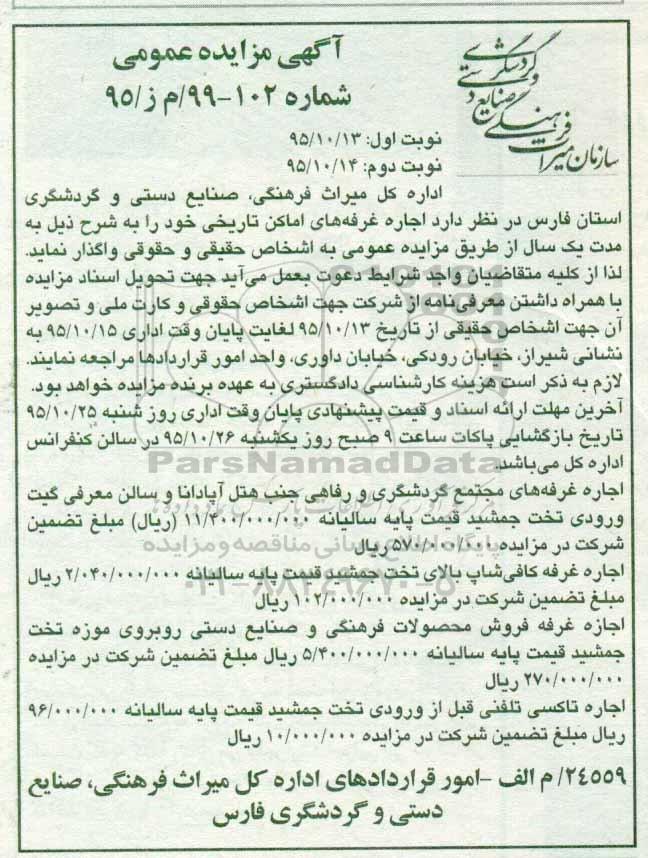 آگهی مزایده عمومی
شماره ۱۰۲-۹۹/م ز/۹۵
سازمان میراث فرهنگی صنایع دستی و گردشگری
نوبت اول: ۹۵/۱۰/۱۳
نوبت دوم: ۹۵/۱۰/۱۴
اداره کل میراث فرهنگی، صنایع دستی و گردشگری
استان فارس در نظر دارد اجاره غرفه‌های اماکن تاریخی خود را به شرح ذیل به
مدت یک سال از طریق مزایده عمومی به اشخاص حقیقی و حقوقی واگذار نماید.
لذا از کلیه متقاضیان واجد شرایط دعوت بعمل می‌آید جهت تحویل اسناد مزایده
با همراه داشتن معرفی‌نامه از شرکت جهت اشخاص حقوقی و کارت ملی و تصویر
آن جهت اشخاص حقیقی از تاریخ ۹۵/۱۰/۱۳ لغایت پایان وقت اداری ۹۵/۱۰/۱۵ به
نشانی شیراز، خیابان رودکی، خیابان داوری، واحد امور قراردادها مراجعه نمایند.
لازم به ذکر است هزینه کارشناسی دادگستری به عهده برنده مزایده خواهد بود.
آخرین مهلت ارائه اسناد و قیمت پیشنهادی پایان وقت اداری روز شنبه ۹۵/۱۰/۲۵
تاریخ بازگشایی پاکات ساعت ۹ صبح روز یکشنبه ۹۵/۱۰/۲۶ در سالن کنفرانس
اداره کل می‌باشد.
ParsNamadData
اجاره غرفه‌های مجتمع گردشگری و رفاهی جنب هتل آپادانا و سالن معرفی گیت
ورودی تخت جمشید قیمت پایه سالیانه ۱۱/۴۰۰/۰۰۰/۰۰۰ (ریال) مبلغ تضمین
شرکت در مزایده ۵۷۰/۰۰۰/۰۰۰ ریال
پایگاه اطلاع رسانی مناقصه و مزایده
اجاره غرفه کافی‌شاپ بالای تخت جمشید قیمت پایه سالیانه ۲/۰۴۰/۰۰۰/۰۰۰ ریال
مبلغ تضمین شرکت در مزایده ۱۰۲/۰۰۰/۰۰۰ ریال
۰۲۱-۸۸۳۴۹۶۷۰-۵
اجازه غرفه فروش محصولات فرهنگی و صنایع دستی روبروی موزه تخت
جمشید قیمت پایه سالیانه ۵/۴۰۰/۰۰۰/۰۰۰ ریال مبلغ تضمین شرکت در مزایده
۲۷۰/۰۰۰/۰۰۰ ریال
اجاره تاکسی تلفنی قبل از ورودی تخت جمشید قیمت پایه سالیانه ۹۶/۰۰۰/۰۰۰
ریال مبلغ تضمین شرکت در مزایده ۱۰/۰۰۰/۰۰۰ ریال
۲۴۵۵۹/ م الف -امور قراردادهای اداره کل میراث فرهنگی، صنایع
دستی و گردشگری فارس